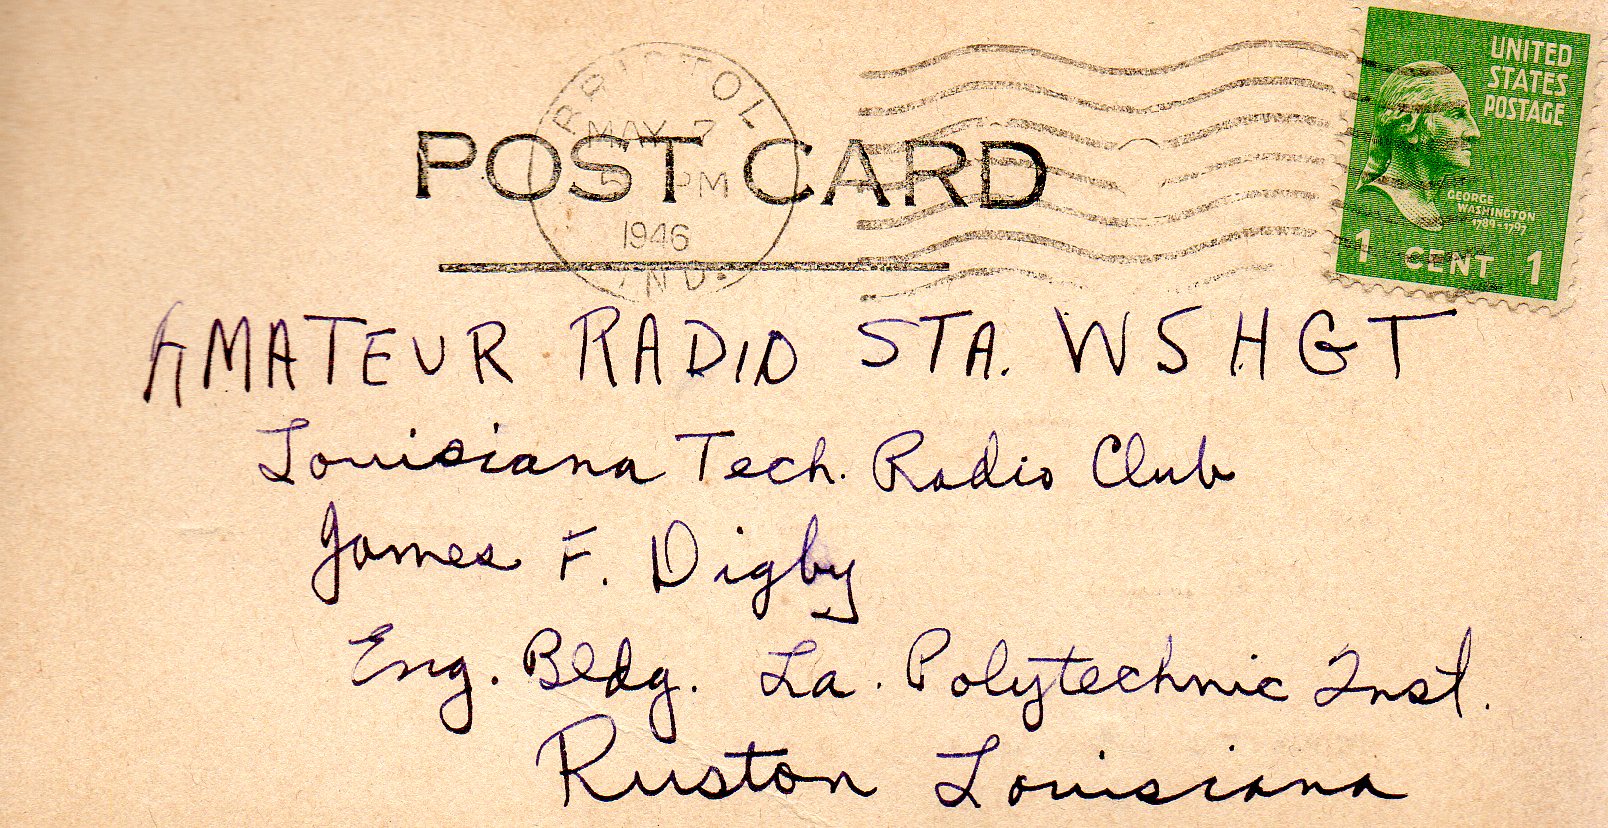 BRISTOL
MAY 7
PM
1946
IND.
POST CARD
UNITED
STATES
POSTAGE
GEORGE
WASHINGTON
1789-1797
1 CENT 1
AMATEUR RADIO STA. W5HGT
Louisiana Tech. Radio Club
James F. Digby
Eng. Bldg. La. Polytechnic Inst.
Ruston Louisiana